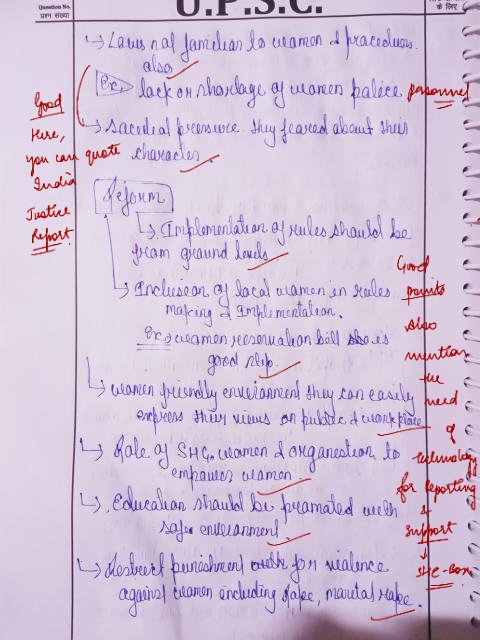 Question No.
प्रश्न संख्या
U.P.S.C.
के लिए
↳ Laws not familiar to women & procedures
also
Ex. lack or shortage of women police personnel
↳ Sacoetal pressure they feared about their
character
Good
Here,
you can quote
India
Justice
Report
Reform
↳ Implementation of rules should be
from ground levels
↳ Inclusion of local women in rules
making & Implementation.
Ex: women reservation bill also is
good step.
↳ women friendly environment they can easily
express their views on public & work place
↳ Role of SHG, women & organestion to
empower women
↳ Education should be promoted with
safe environment
↳ punishment for violence
against women including rape, marital rape.
Good
points
also
mention
the
need
of
technology
for reporting
&
support
↓
SHE-Box